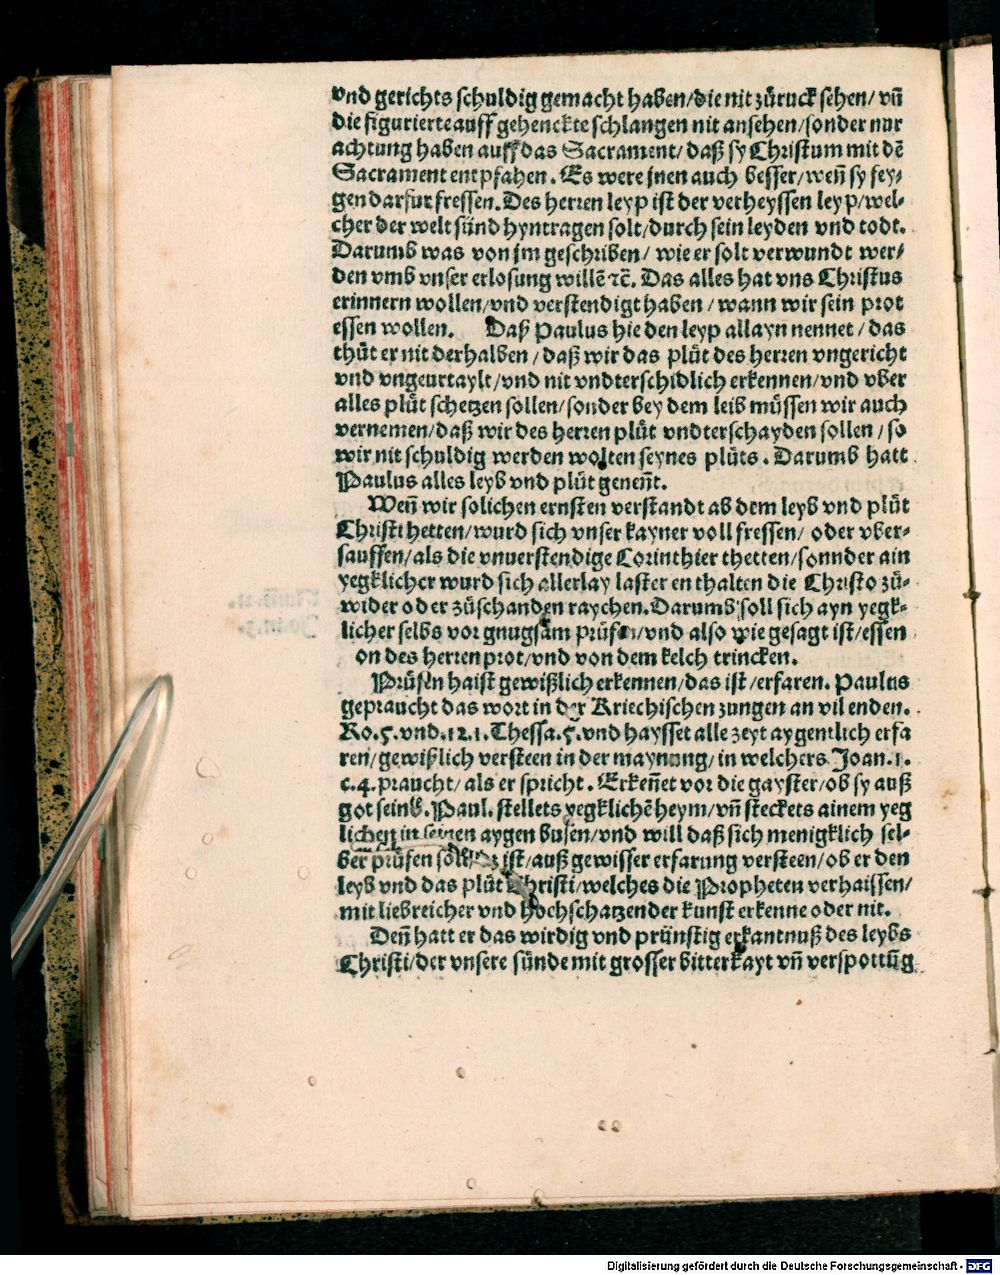 vnd gerichts schuldig gemacht haben/die nit zůruck sehen/ vñ
die figurierte auff gehenckte schlangen nit ansehen/sonder nur
achtung haben auff das Sacrament/ daß sy Christum mit dē
Sacrament entpfahen. Es were jnen auch besser/weñ sy fey⸗
gen darfur fressen. Des herren leyp ist der verheyssen leyp/wel⸗
cher der welt sünd hyntragen solt/durch sein leyden vnd todt.
Darumb was von jm geschriben/ wie er solt verwundt wer⸗
den vmb vnser erlosung willē ⁊c̄. Das alles hat vns Christus
erinnern wollen/vnd verstendigt haben / wann wir sein prot
essen wollen. Daß Paulus hie den leyp allayn nennet / das
thůt er nit derhalben / daß wir das plůt des herren vngericht
vnd vngeurtaylt/vnd nit vndterschidlich erkennen/vnd vber
alles plůt schetzen sollen/sonder bey dem leib müssen wir auch
vernemen/daß wir des herren plůt vndterschayden sollen / so
wir nit schuldig werden wolten seynes plůts. Darumb hatt
Paulus alles leyb vnd plůt geneñt.
Weñ wir solichen ernsten verstandt ab dem leyb vnd plůt
Christi hetten/wurd sich vnser kayner voll fressen/ oder vber⸗
sauffen/als die vnuerstendige Corinthier thetten/sonnder ain
yegklicher wurd sich allerlay laster enthalten die Christo zů⸗
wider oder zůschanden raychen. Darumb soll sich ayn yegk⸗
licher selbs vor gnugsam prüfen/vnd also wie gesagt ist/essen
on des herren prot/vnd von dem kelch trincken.
Prüfen haist gewißlich erkennen/das ist/erfaren. Paulus
gepraucht das wort in der Kriechischen zungen an vil enden.
Ro.5. vnd.12.1. Thessa.5. vnd haysset alle zeyt aygentlich erfa
ren/gewißlich versteen in der maynung/in welchers Joan.1.
c.4. praucht/ als er spricht. Erkeñet vor die gayster/ob sy auß
got seind. Paul. stellets yegklichē heym/vñ steckets ainem yeg
lichen in seinen aygen busen/vnd will daß sich menigklich sel⸗
ber prüfen ist/auß gewisser erfarung versteen/ob er den
leyb vnd das plůt Christi/welches die Propheten verhaissen/
mit liebreicher vnd hochschatzender kunst erkenne oder nit.
Deñ hatt er das wirdig vnd prünstig erkantnuß des leybs
Christi/der vnsere sünde mit grosser bitterkayt vñ verspottūg
Digitalisierung gefördert durch die Deutsche Forschungsgemeinschaft - DFG